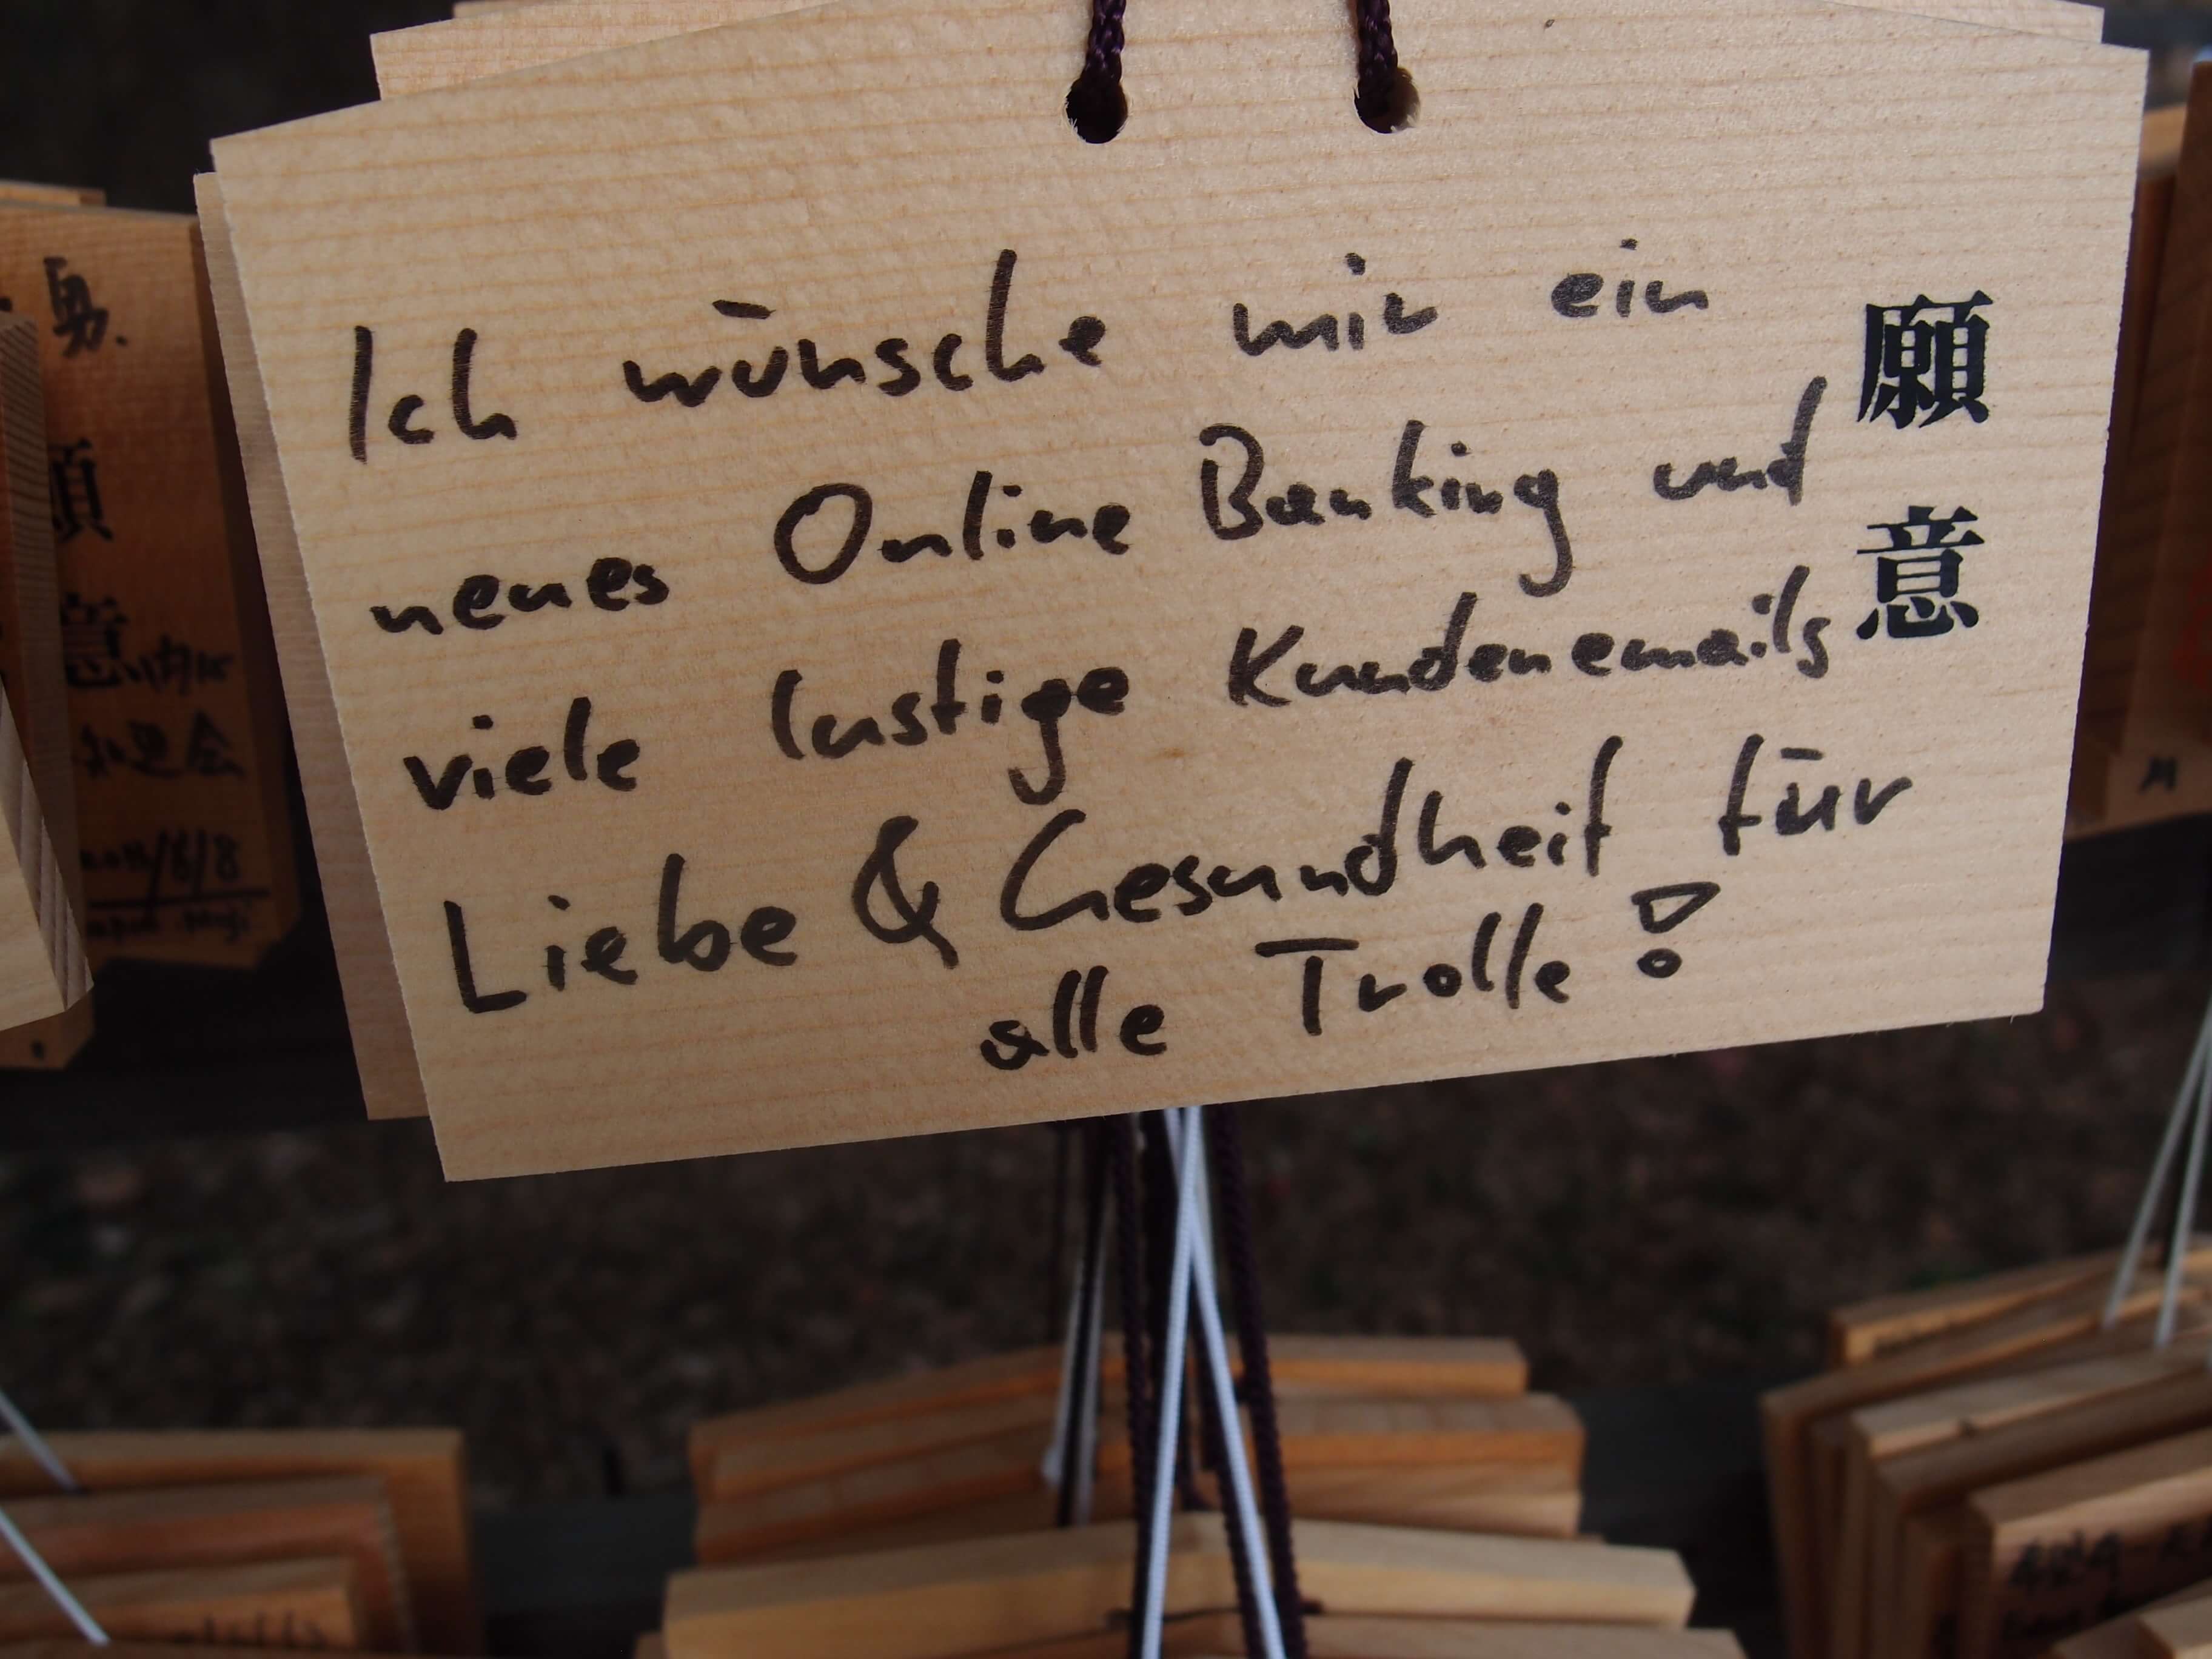 Ich wünsche mir ein
neues Online Banking und
viele lustige Kundenemails
Liebe & Gesundheit für
alle Trolle!
願意
願
意
知足会
/8/8